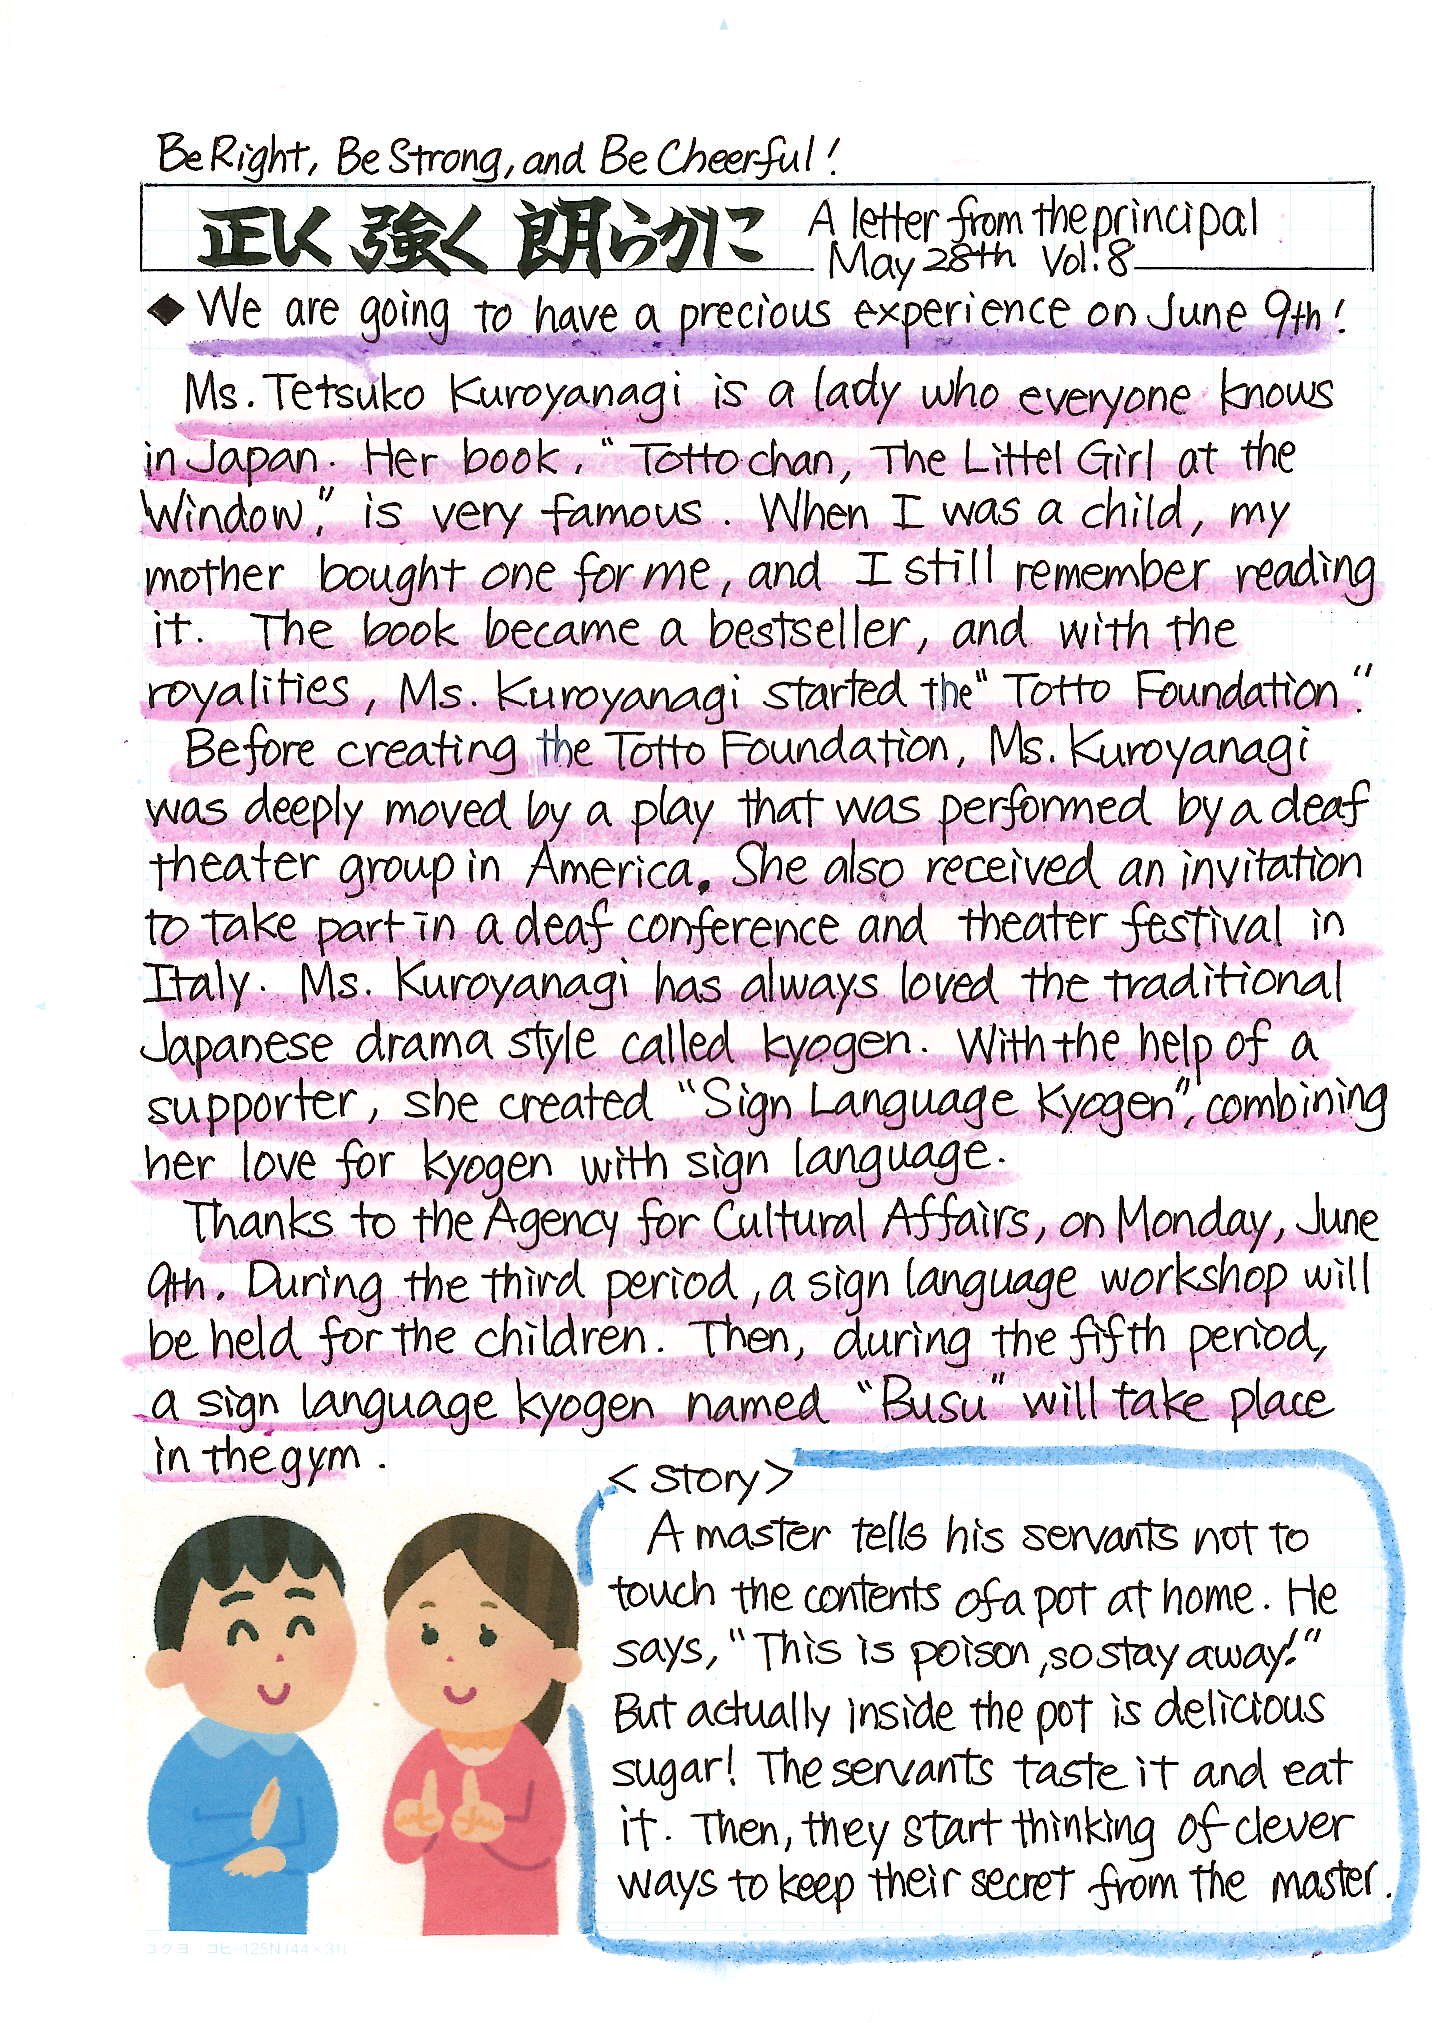 Be Right, Be Strong, and Be Cheerful!
正しく 強く 朗らかに
A letter from the principal
May 28th Vol.8
◆ We are going to have a precious experience on June 9th!
Ms. Tetsuko Kuroyanagi is a lady who everyone knows
in Japan. Her book, "Totto chan, The Littel Girl at the
Window," is very famous. When I was a child, my
mother bought one for me, and I still remember reading
it. The book became a bestseller, and with the
royalities, Ms. Kuroyanagi started the "Totto Foundation."
Before creating the Totto Foundation, Ms. Kuroyanagi
was deeply moved by a play that was performed by a deaf
theater group in America. She also received an invitation
to take part in a deaf conference and theater festival in
Italy. Ms. Kuroyanagi has always loved the traditional
Japanese drama style called kyogen. With the help of a
supporter, she created "Sign Language Kyogen", combining
her love for kyogen with sign language.
Thanks to the Agency for Cultural Affairs, on Monday, June
9th. During the third period, a sign language workshop will
be held for the children. Then, during the fifth period,
a sign language kyogen named "Busu" will take place
in the gym.
<story>
A master tells his servants not to
touch the contents of a pot at home. He
says, "This is poison, so stay away!"
But actually inside the pot is delicious
sugar! The servants taste it and eat
it. Then, they start thinking of clever
ways to keep their secret from the master.